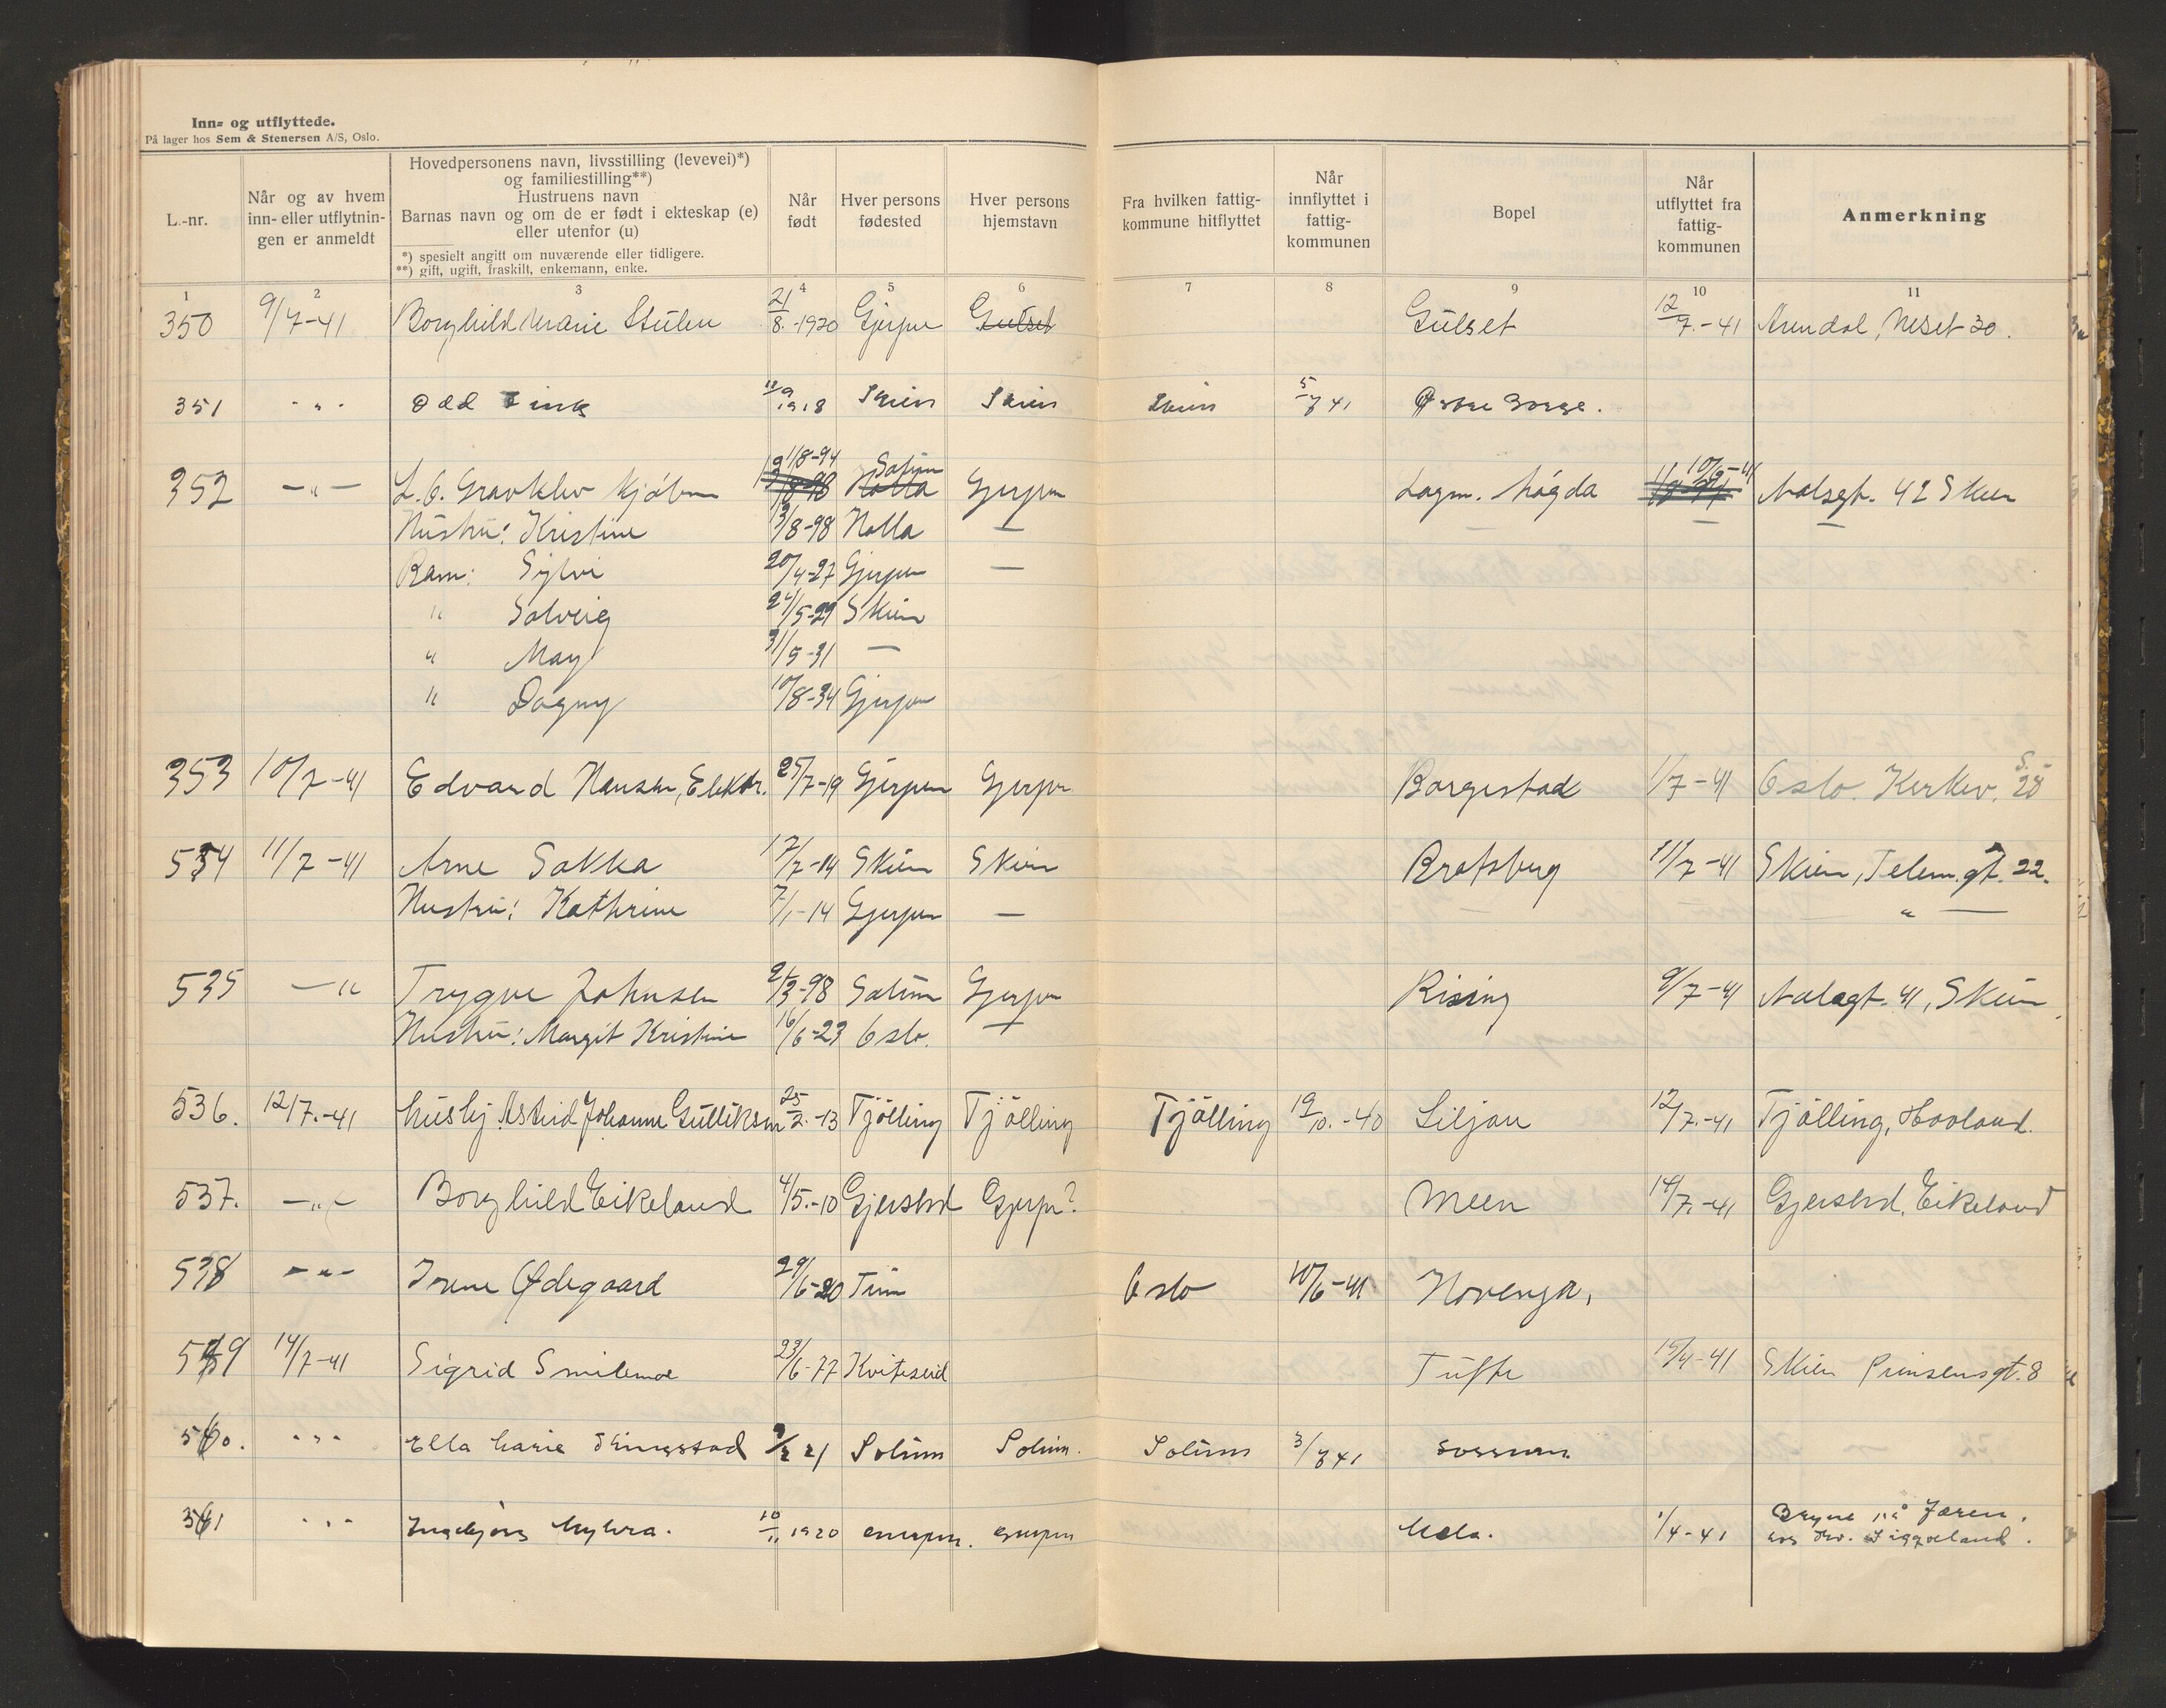 Inn- og utflyttede.
På lager hos Sem & Stenersen A/S, Oslo.
L.-nr.
Når og av hvem inn- eller utflytnin-gen er anmeldt
Hovedpersonens navn, livsstilling (levevei)*)
og familiestilling**)
Hustruens navn
Barnas navn og om de er født i ekteskap (e)
eller utenfor (u)
*) spesielt angitt om nuværende eller tidligere.
**) gift, ugift, fraskilt, enkemann, enke.
Når født
Hver persons fødested
Hver persons hjemstavn
Fra hvilken fattig-kommune hitflyttet
Når innflyttet i fattig-kommunen
Bopel
Når utflyttet fra fattig-kommunen
Anmerkning
1 2 3 4 5 6 7 8 9 10 11
350 9/7-41 Borghild Marie Stulen 21/8.-1920 Gjerpen Gulset Gulset 12/7.-41 Arendal, Neset 30.
351 - " - Odd 1918 Skien Skien Skien 5/7 41
352 - " - L. O. Gravklev Kjøbm 11/8-94 Solum Gjerpen Løgda 10/9-41 42 Skien
Hustru: Kristine 13/8-98 Holla —
Barn: Sylvi 20/4-27 Gjerpen —
" Solveig 24/5-29 Skien
" May 31/5-31 —
" Dagny 10/8-34 Gjerpen
353 10/7-41 Edvard Hansen, Elektr. 25/7-19 Gjerpen Gjerpen Borgestad 1/7-41 Oslo. Kirkev. 20
534 11/7-41 Arne Sakka 17/7-14 Skien Skien Bratsberg 11/7-41 Skien, Telem.gt. 22.
Hustru: Kathrine 7/1-14 Gjerpen — — — " —
535 — " Trygve Johnsen 2/3-98 Solum Gjerpen Rising 9/7-41 41, Skien
Hustru: Margit Kristine 16/6-23 Oslo. —
536. 12/7.-41 Hushj Astrid Johanne Gulliksen 25/2.-13 Tjølling Tjølling Tjølling 19/10.-40 Liljan 12/7.-41 Tjølling, Hovland.
537. - " - Borghild Eikeland 4/5.-10 Gjerstad Gjerpn? Meen 14/7.-41 Gjerstad, Eikeland
538 - " - Irene Ødegaard 29/6-20 Tinn Oslo 10/6-41 Hovenga,
539 14/7-41 Sigrid Smilemoe 23/6-77 Kviteseid Tufte 15/4-41 Skien Prinsensgt. 8
540. " " " Ella Marie 21 Solum Solum. Solum 3/7 41
341 " " " Ingebjørg Myhra. 10/11 1920 Gjerpen. Gjerpen Mela. 1/4-41 Bryne på Jæren.